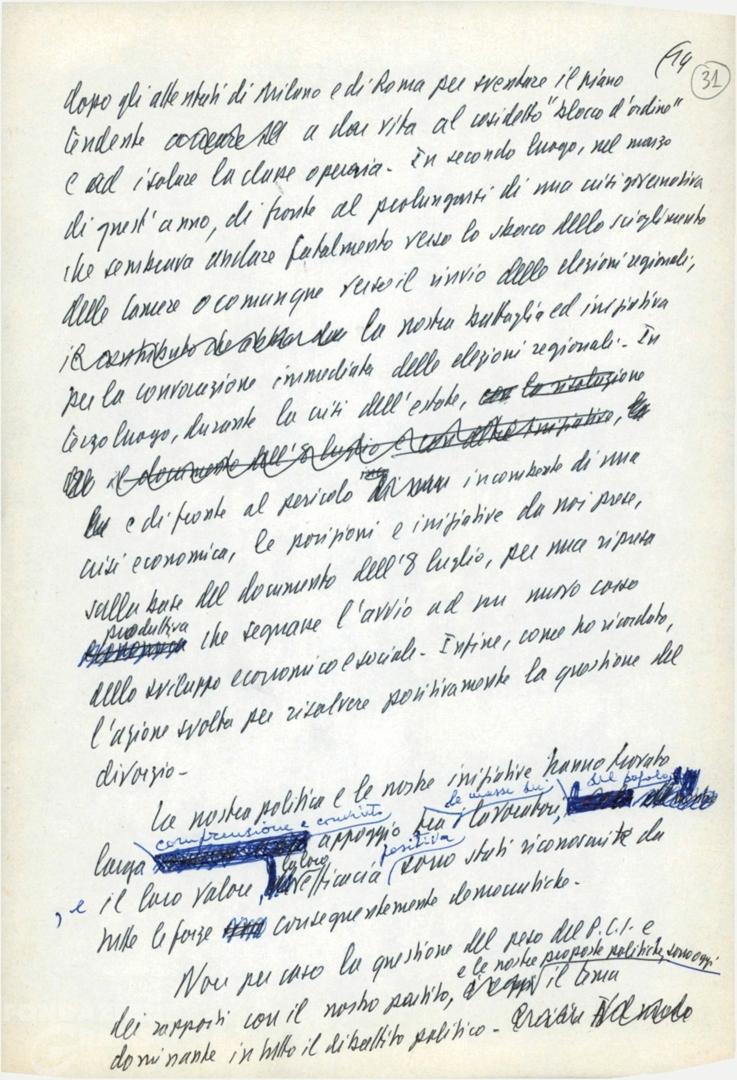 14
31
dopo gli attentati di Milano e di Roma per sventare il piano
tendente a dar vita al cosidetto "blocco d'ordine"
e ad isolare la classe operaia. In secondo luogo, nel marzo
di quest'anno, di fronte al prolungarsi di una crisi governativa
che sembrava andare fatalmente verso lo sbocco dello scioglimento
delle Camere o comunque verso il rinvio delle elezioni regionali,
la nostra battaglia ed iniziativa
per la convocazione immediata delle elezioni regionali. In
terzo luogo, durante la crisi dell'estate, con la risoluzione
il documento dell'8 luglio e con altre iniziative, la
e di fronte al pericolo incombente di una
crisi economica, le posizioni e iniziative da noi prese,
sulla base del documento dell'8 luglio, per una ripresa
produttiva
economica che segnasse l'avvio ad un nuovo corso
dello sviluppo economico e sociale. Infine, come ho ricordato,
l'azione svolta per risolvere positivamente la questione del
divorzio.
La nostra politica e le nostre iniziative hanno trovato
comprensione e convinto le masse dei del popolo
larga appoggio tra i lavoratori,
la loro positiva
, e il loro valore, efficacia sono stati riconosciuti da
tutte le forze conseguentemente democratiche.
Non per caso la questione del peso del P.C.I. e
e le nostre proposte politiche, sono oggi
dei rapporti con il nostro partito, è oggi il tema
dominante in tutto il dibattito politico.